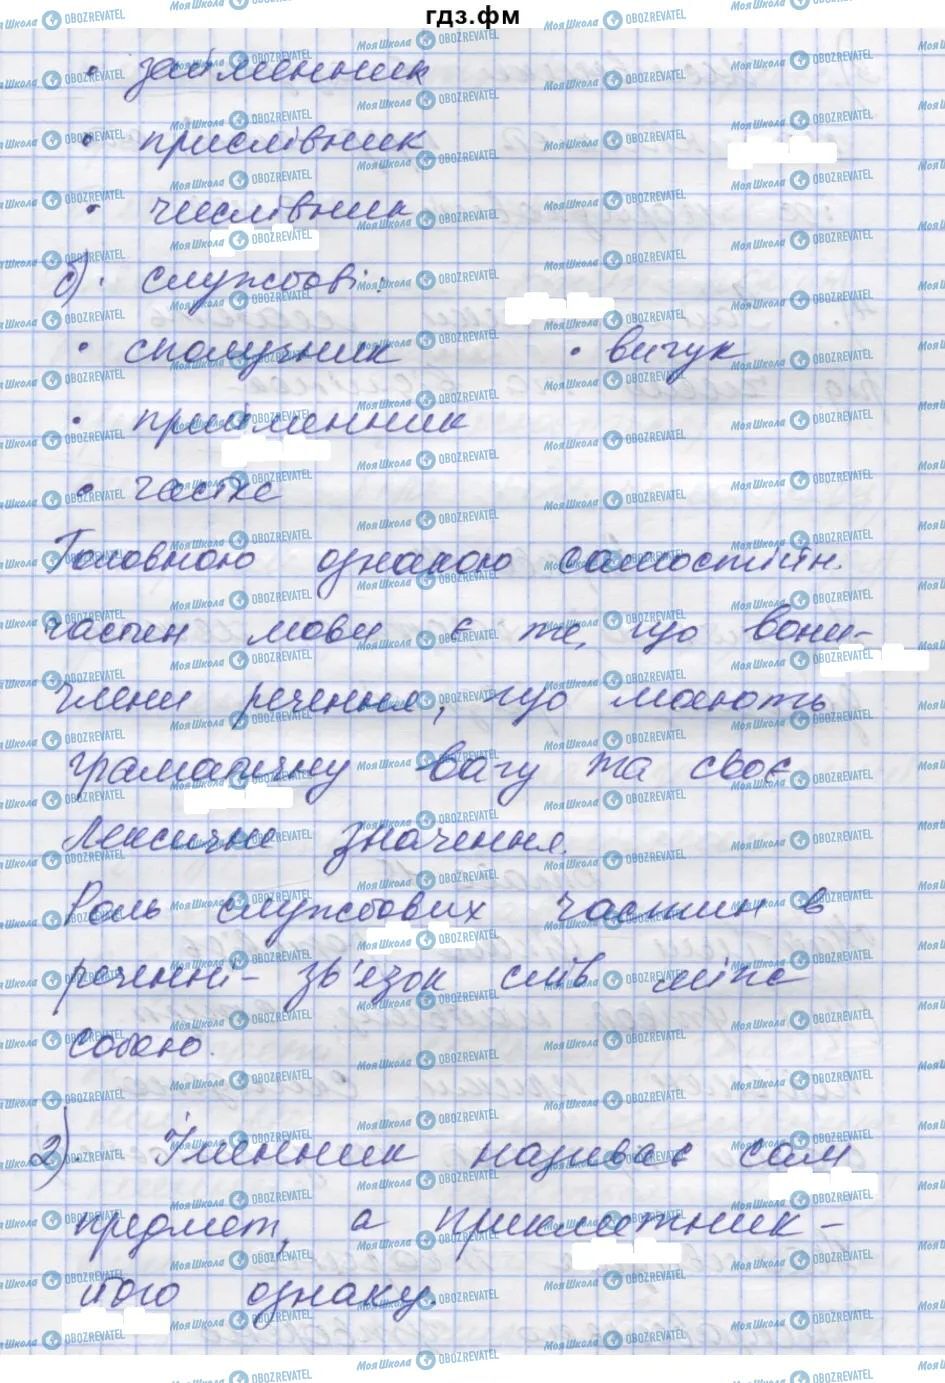 гдз.фм
• займенник
• прислівник
• числівник
б). службові:
• сполучник • вигук
• прийменник
• частка
Головною ознакою самостійн.
частин мови є те, що вони-
члени речення, що мають
граматичну вагу та своє
лексичне значення.
Роль службових частин в
реченні - зв'язок слів між
собою.
2). Іменник називає сам
предмет, а прикметник -
його ознаку.
Моя Школа OBOZREVATEL